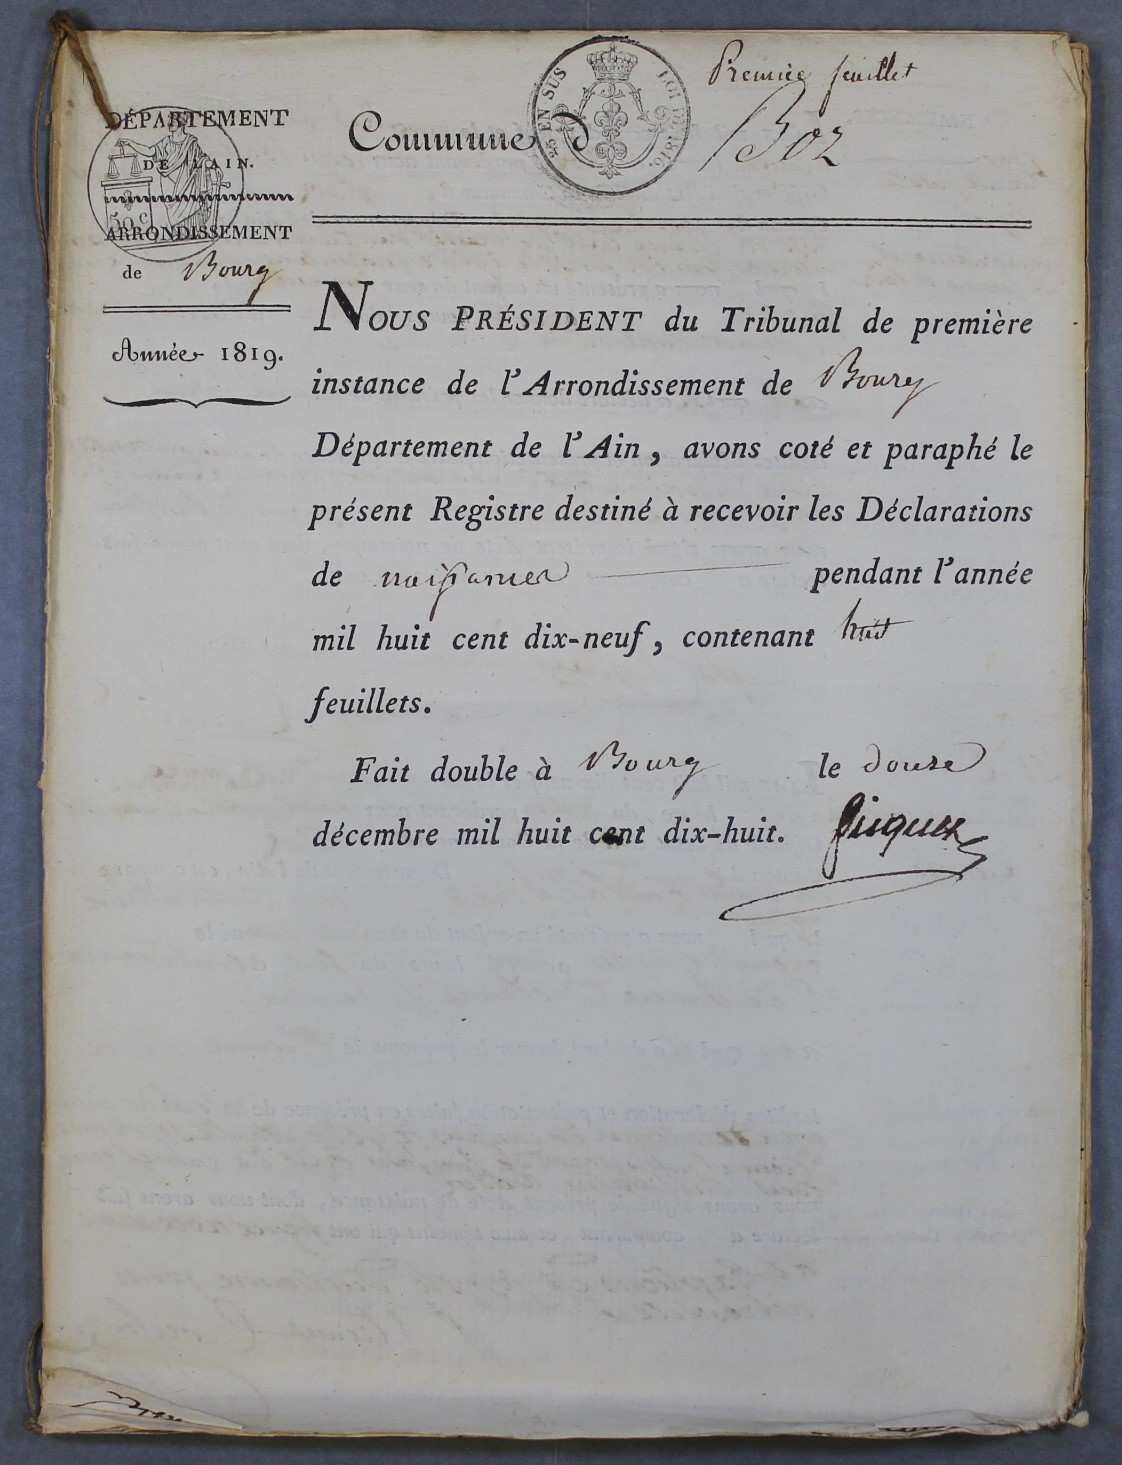 Premier feuillet
DÉPARTEMENT
DE L'AIN.
50 C
ARRONDISSEMENT
de Bourg
Année 1819.
25 EN SUS
LOI DE 1816.
Commune d Boz
NOUS PRÉSIDENT du Tribunal de première
instance de l'Arrondissement de Bourg
Département de l'Ain, avons coté et paraphé le
présent Registre destiné à recevoir les Déclarations
de naissances pendant l'année
mil huit cent dix-neuf, contenant huit
feuillets.
Fait double à Bourg le douze
décembre mil huit cent dix-huit.